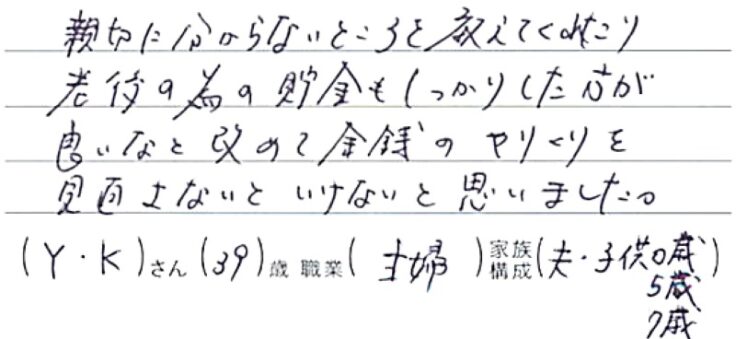 親切に分からないところを教えてくれたり
老後の為の貯金もしっかりした方が
良いなと改めて金銭のやりくりを
見直さないといけないと思いました。
(Y・K)さん(39)歳 職業(主婦)家族構成(夫・子供0歳)
5歳
7歳